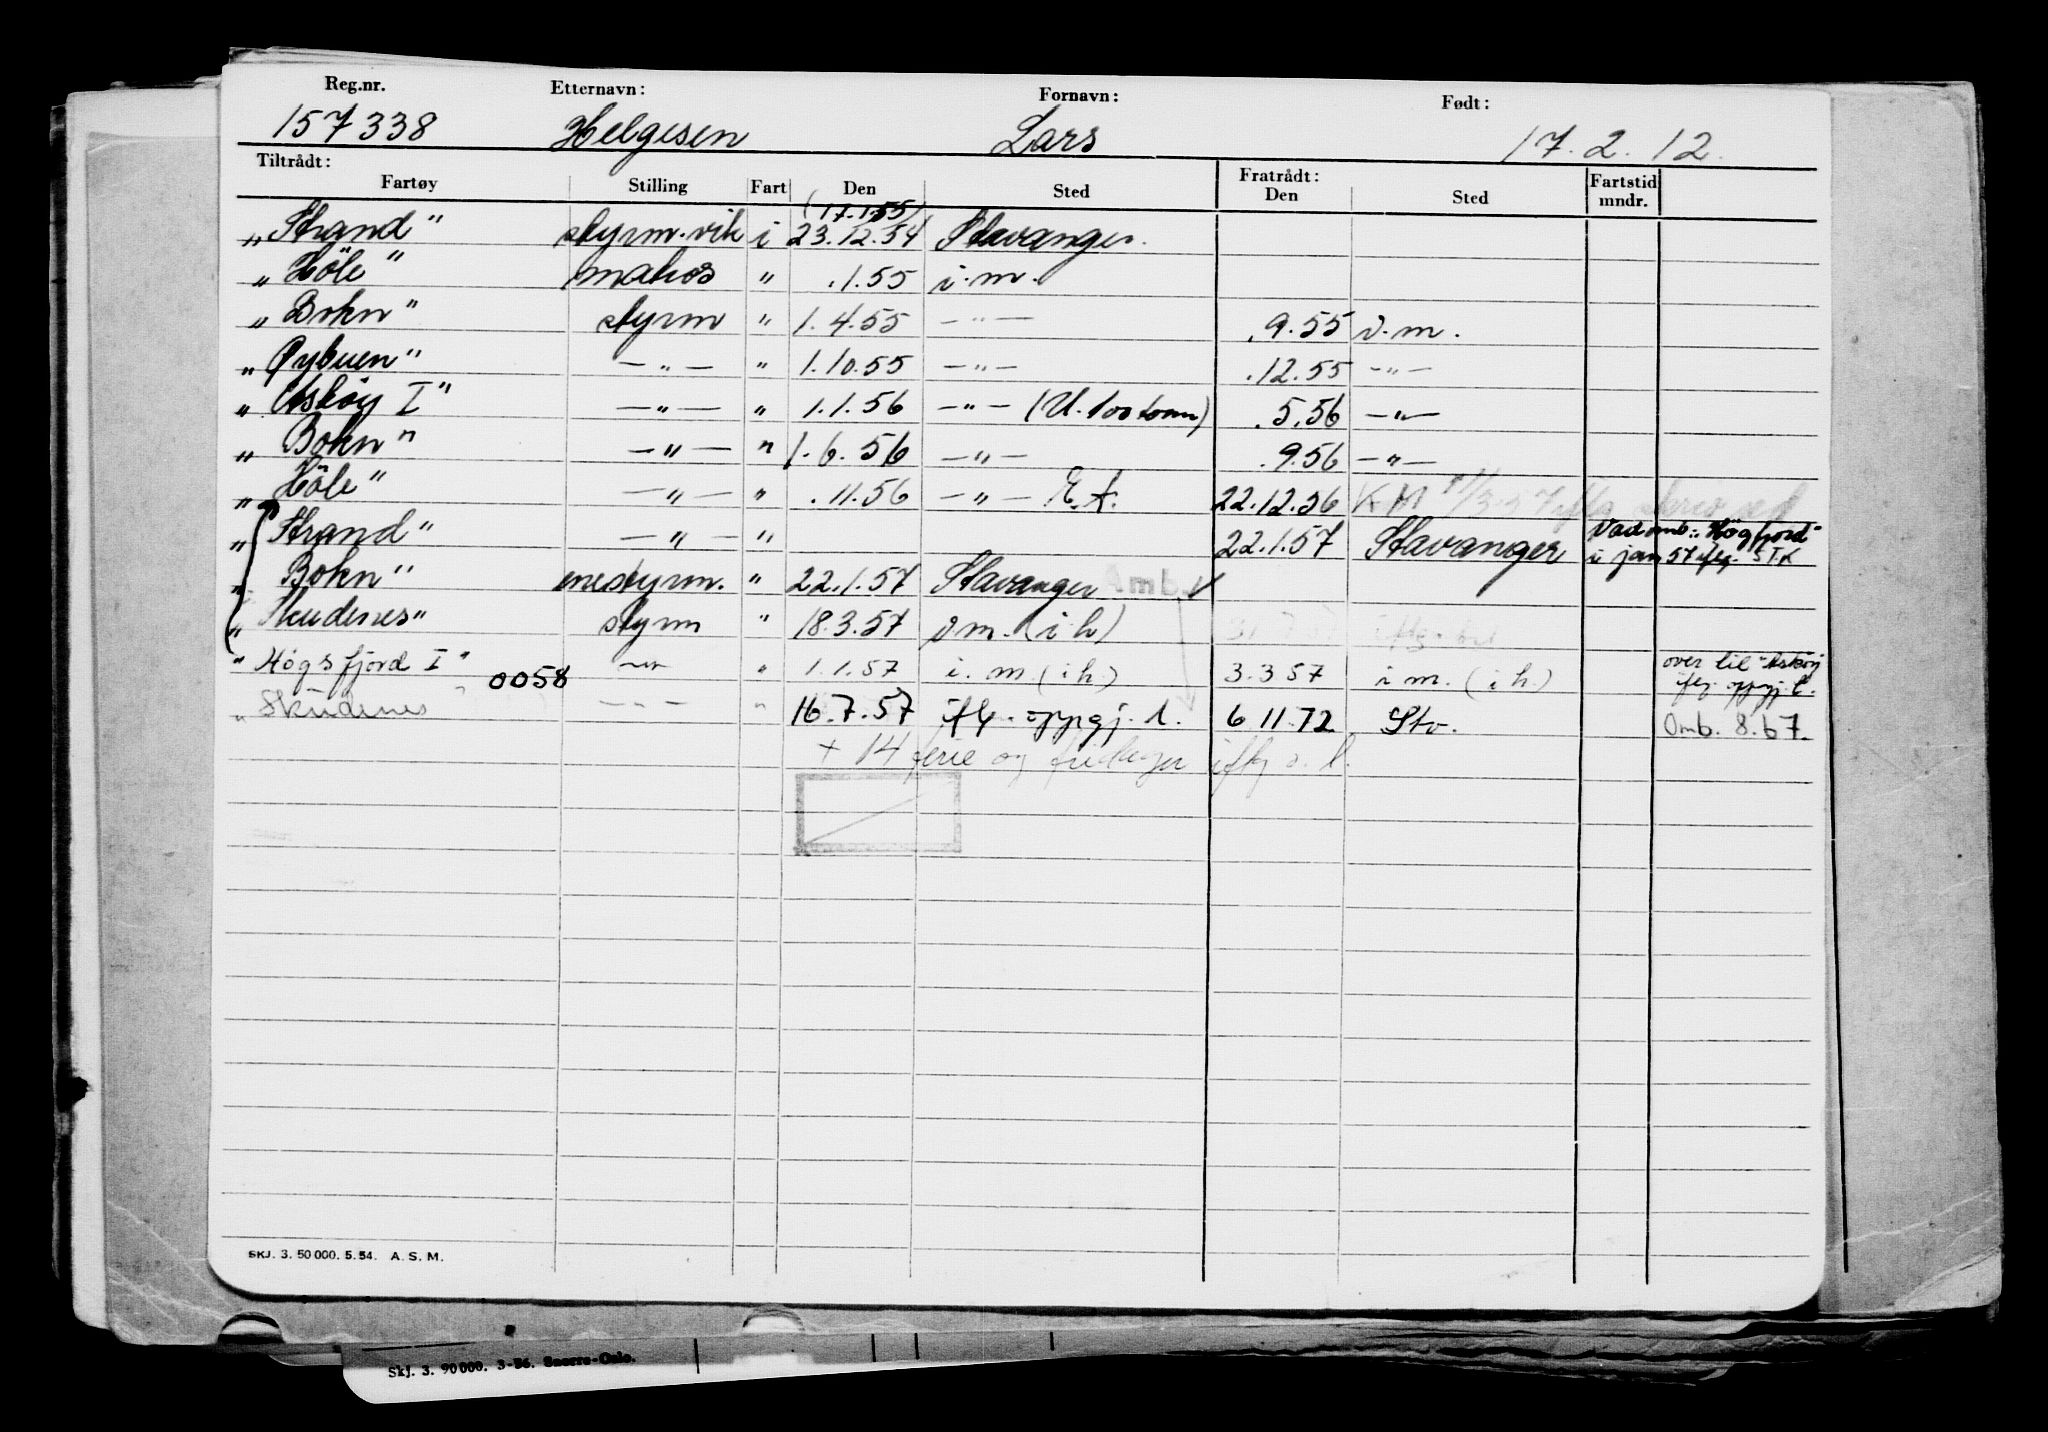 Reg.nr. Etternavn: Fornavn: Født:
157338 Helgesen Lars 17.2.12.
Tiltrådt: Fratrådt:
Fartøy Stilling Fart Den Sted Den Sted Fartstid mndr.
(17.1.55)
„Strand" styrm.vik i 23.12.54 Stavanger.
„Höle" matros " .1.55 i.m.
„Bokn" styrm " 1.4.55 —"— .9.55 i.m.
„Øybuen" —"— " 1.10.55 —"— .12.55 —"—
„Askøy I" —"— " 1.1.56 —"— (U. 100 tonn) .5.56 —"—
„Bokn" —"— " 1.6.56 —"— .9.56 —"—
„Höle" —"— " .11.56 —"— 22.12.56
„Strand" —"— " 22.1.57 Stavanger Var omb.: "Högsfjord"
i jan 57 iflg. STK
„Bokn" enestyrm. " 22.1.57 Stavanger Amb.
„Skudenes" styrm " 18.3.57 i m. (i h)
"Høgsfjord I" —"— " 1.1.57 i. m. (i h.) 3.3.57 i m. (i h.) over til "Askøy
0058 iflg. oppgj. l.
„Skudenes" —"— " 16.7.57 iflg. oppgj. l. 6 11.72 Stv. Omb. 8.67.
+ 14 ferie og fridager iflg o. l.
SKJ. 3. 50 000. 5. 54. A. S. M.
Skj. 3. 90000. 3-56. Snorre-Oslo.